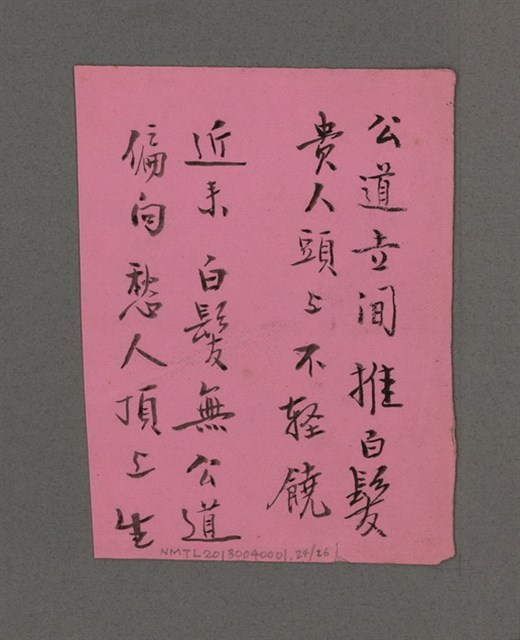 公道世间推白髮
貴人頭上不轻饒
近来白髮無公道
偏向愁人頂上生
NMTL20130040001.24/26